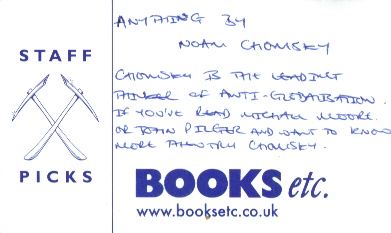 STAFF
PICKS
ANYTHING BY
NOAM CHOMSKY
CHOMSKY IS THE LEADING
THINKER OF ANTI-GLOBALISATION.
IF YOU'VE READ MICHAEL MOORE
OR JOHN PILGER AND WANT TO KNOW
MORE THEN TRY CHOMSKY.
BOOKS etc.
www.booksetc.co.uk